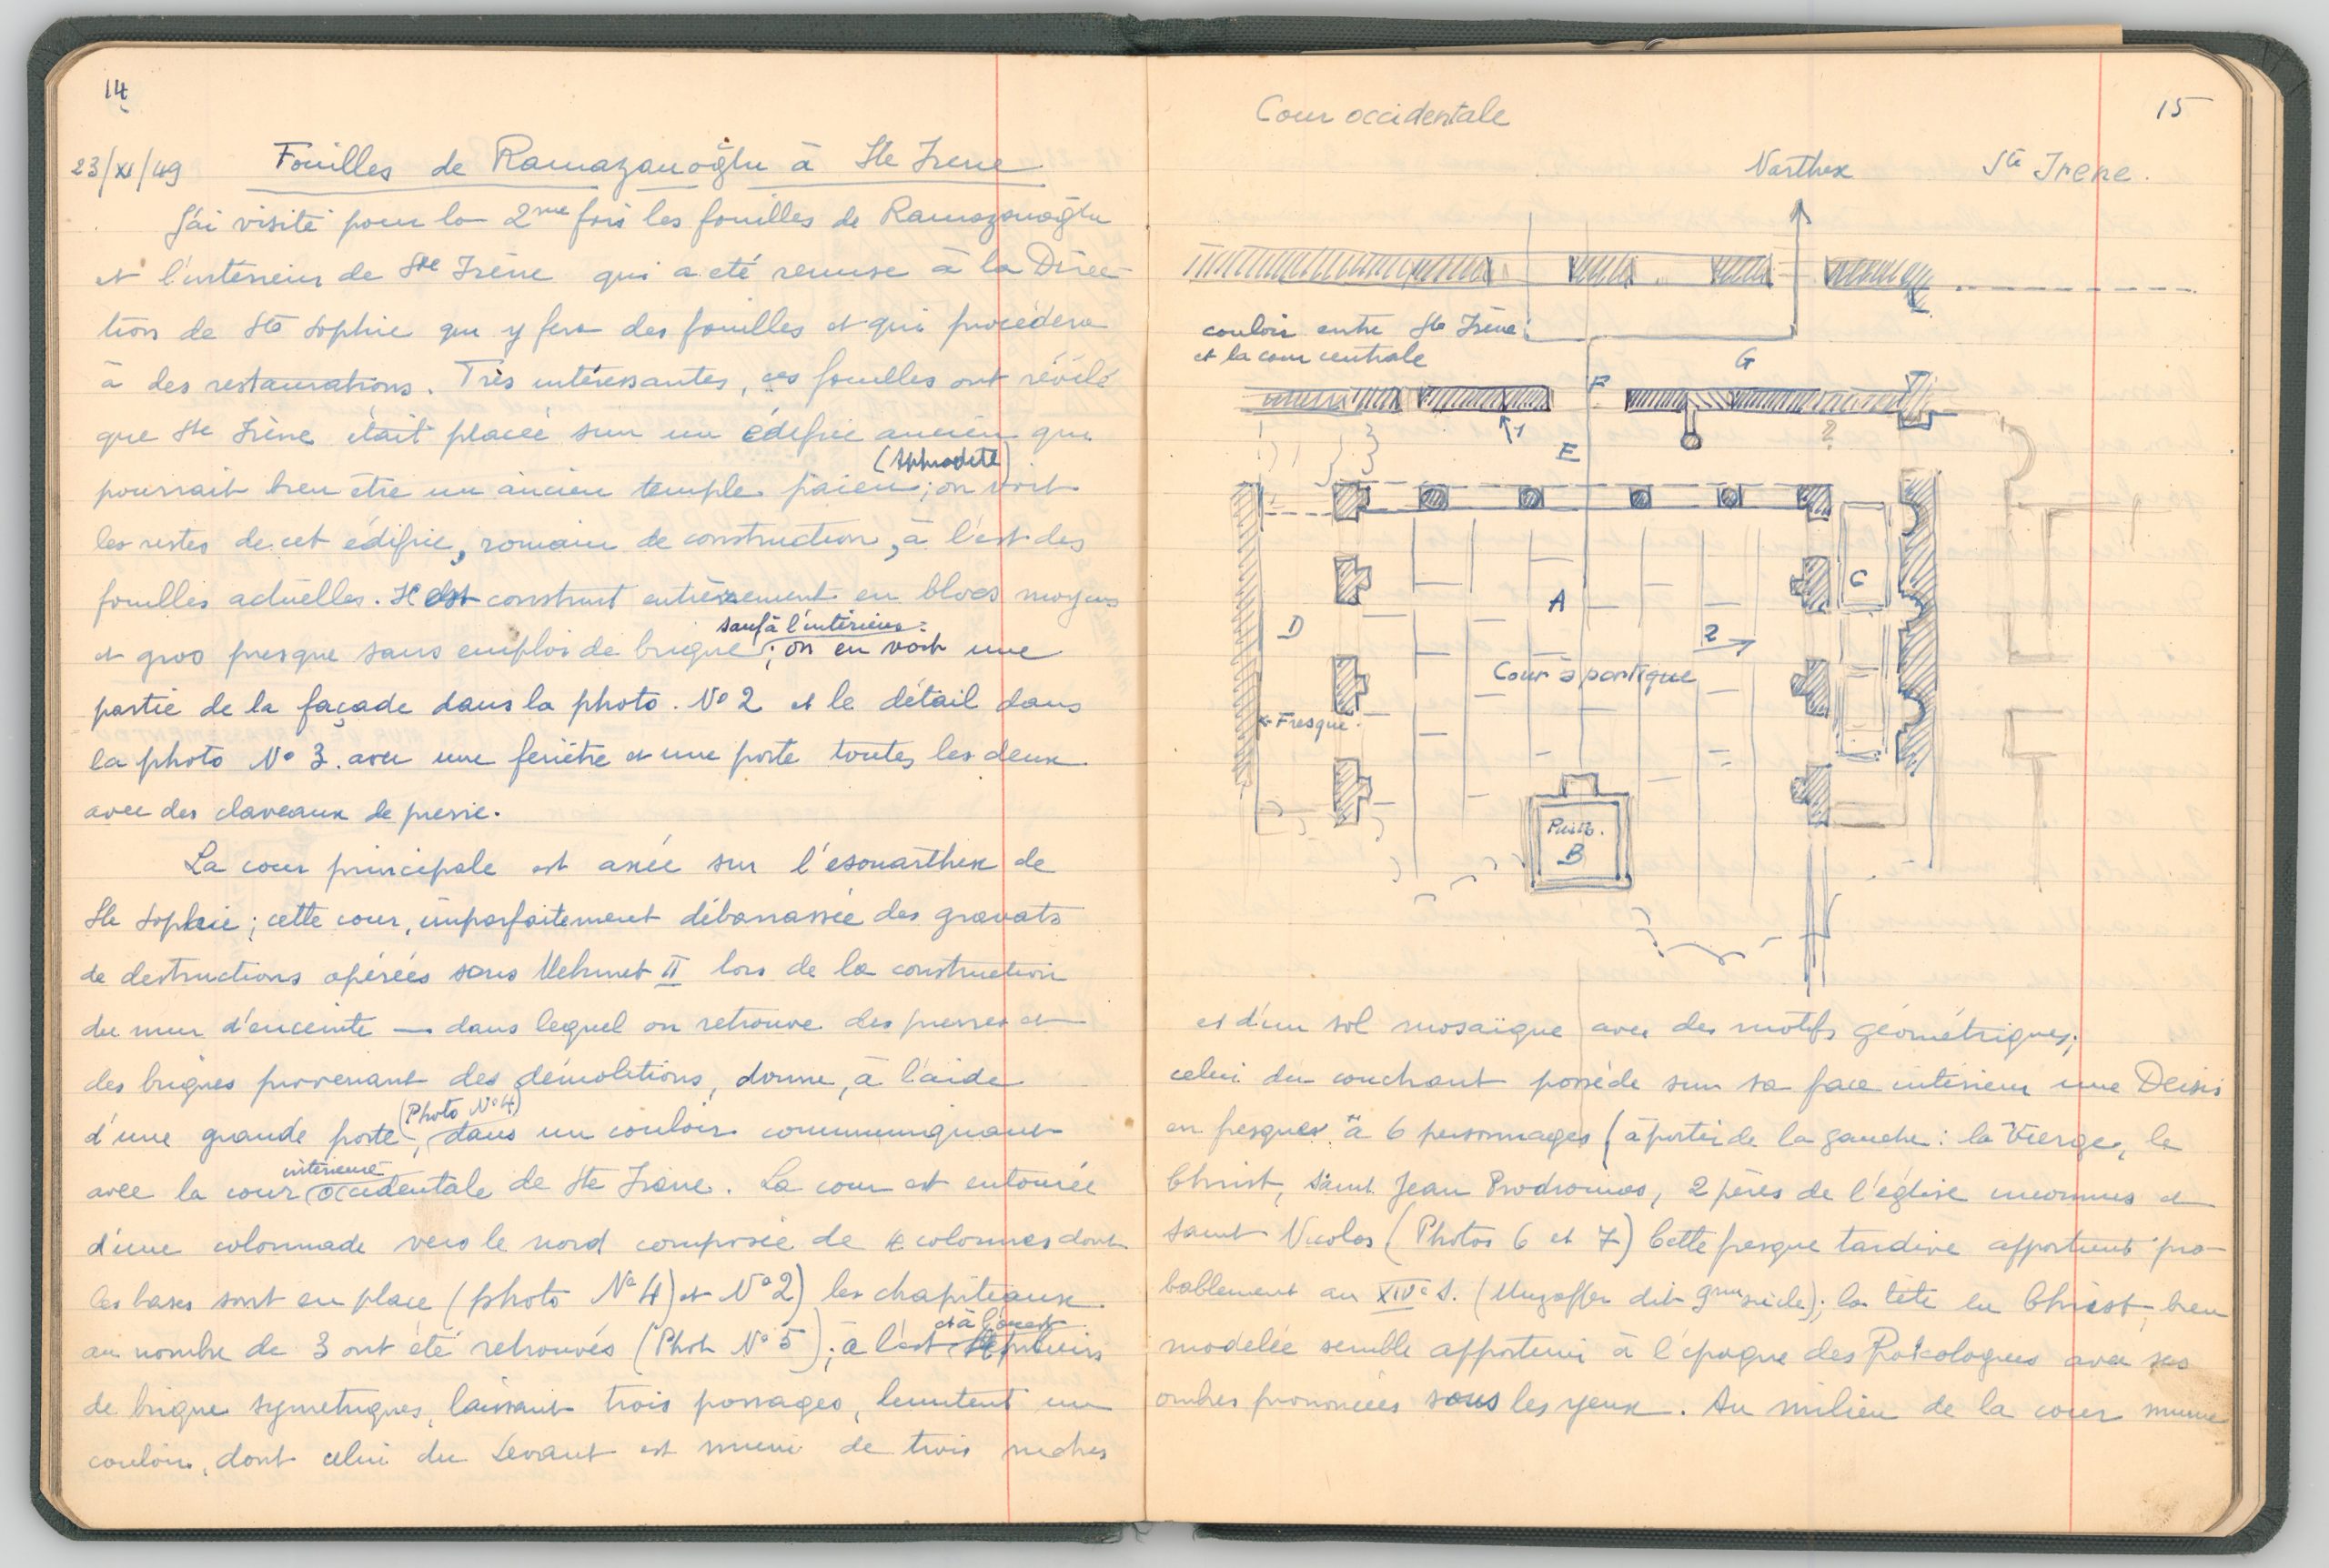 14
23/XI/49 Fouilles de Ramazanoğlu à Ste Irene
J'ai visité pour la 2me fois les fouilles de Ramazanoğlu
et l'intérieur de Ste Irène qui a été remise à la Direc-
tion de Ste Sophie qui y fera des fouilles et qui procédera
à des restaurations. Très intéressantes, ces fouilles ont révélé
que Ste Irène était placée sur un édifice ancien qui
(Aphrodite)
pourrait bien être un ancien temple païen; on voit
les restes de cet édifice, romain de construction, à l'est des
fouilles actuelles. Il est construit entièrement en blocs moyens
sauf à l'intérieur:
et gros presque sans emploi de brique; on en voit une
partie de la façade dans la photo. No 2 et le détail dans
la photo No 3. avec une fenêtre et une porte toutes les deux
avec des claveaux de pierre.
La cour principale est axée sur l'esonarthex de
Ste Sophie; cette cour, imparfaitement débarrassée des gravats
de destructions opérées sous Mehmet II lors de la construction
du mur d'enceinte — dans lequel on retrouve des pierres et
des briques provenant des démolitions, donne, à l'aide
(Photo No 4)
d'une grande porte, dans un couloir communiquant
intérieure
avec la cour occidentale de Ste Irène. La cour est entourée
d'une colonnade vers le nord composée de 4 colonnes dont
les bases sont en place (photo No 4) et No 2) les chapiteaux
et à l'ouest
au nombre de 3 ont été retrouvés (Phot No 5); à l'est piliers
de brique symetriques, laissant trois passages, limitent un
couloir, dont celui du Levant est muni de trois niches
15
Cour occidentale
Narthex
Ste Irene.
couloir entre Ste Irène
et la cour centrale
G
F
1
?
E
C
A
D
2
Cour à portique
Fresque.
Puits.
B
et d'un sol mosaïque avec des motifs géométriques;
celui du couchant possède sur sa face intérieur une Deisis
en fresques à 6 personnages (à partir de la gauche: la Vierge, le
Christ, saint Jean Prodromos, 2 pères de l'église inconnus et
saint Nicolas (Photos 6 et 7) Cette fresque tardive appartient pro-
bablement au XIVe s. (Muzaffer dit siècle); la tête du Christ, bien
modelée semble appartenir à l'époque des Paléologues avec ses
ombres prononcées sous les yeux. Au milieu de la cour